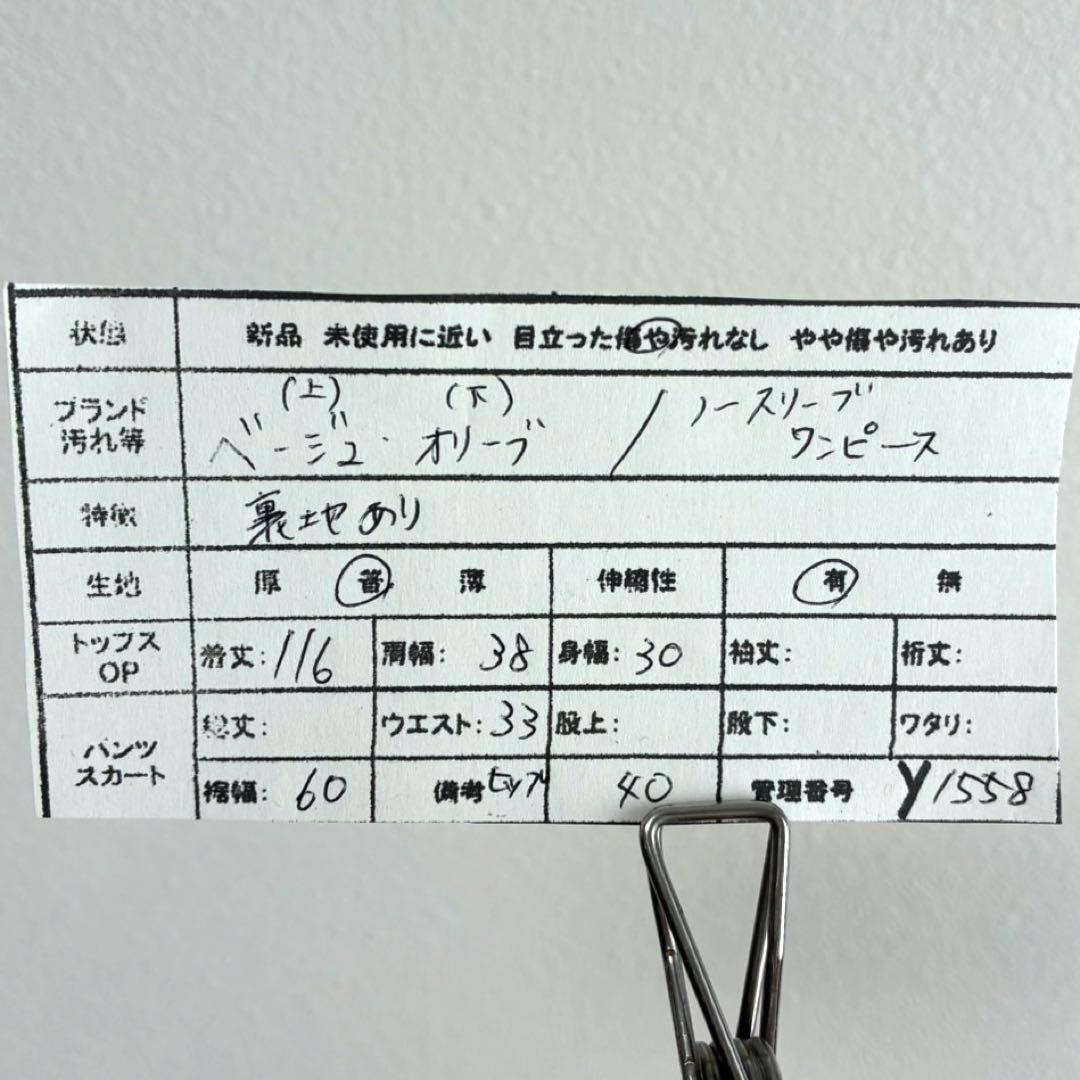 状態 新品 未使用に近い 目立った傷や汚れなし やや傷や汚れあり
ブランド 汚れ等
(上) (下)
ベージュ・オリーブ / ノースリーブ
ワンピース
特徴 裏地あり
生地 厚 普 薄 伸縮性 有 無
トップス OP 着丈:116 肩幅:38 身幅:30 袖丈: 裄丈:
パンツ スカート
総丈: ウエスト:33 股上: 股下: ワタリ:
裾幅:60 備考 ヒップ 40 管理番号 Y1558